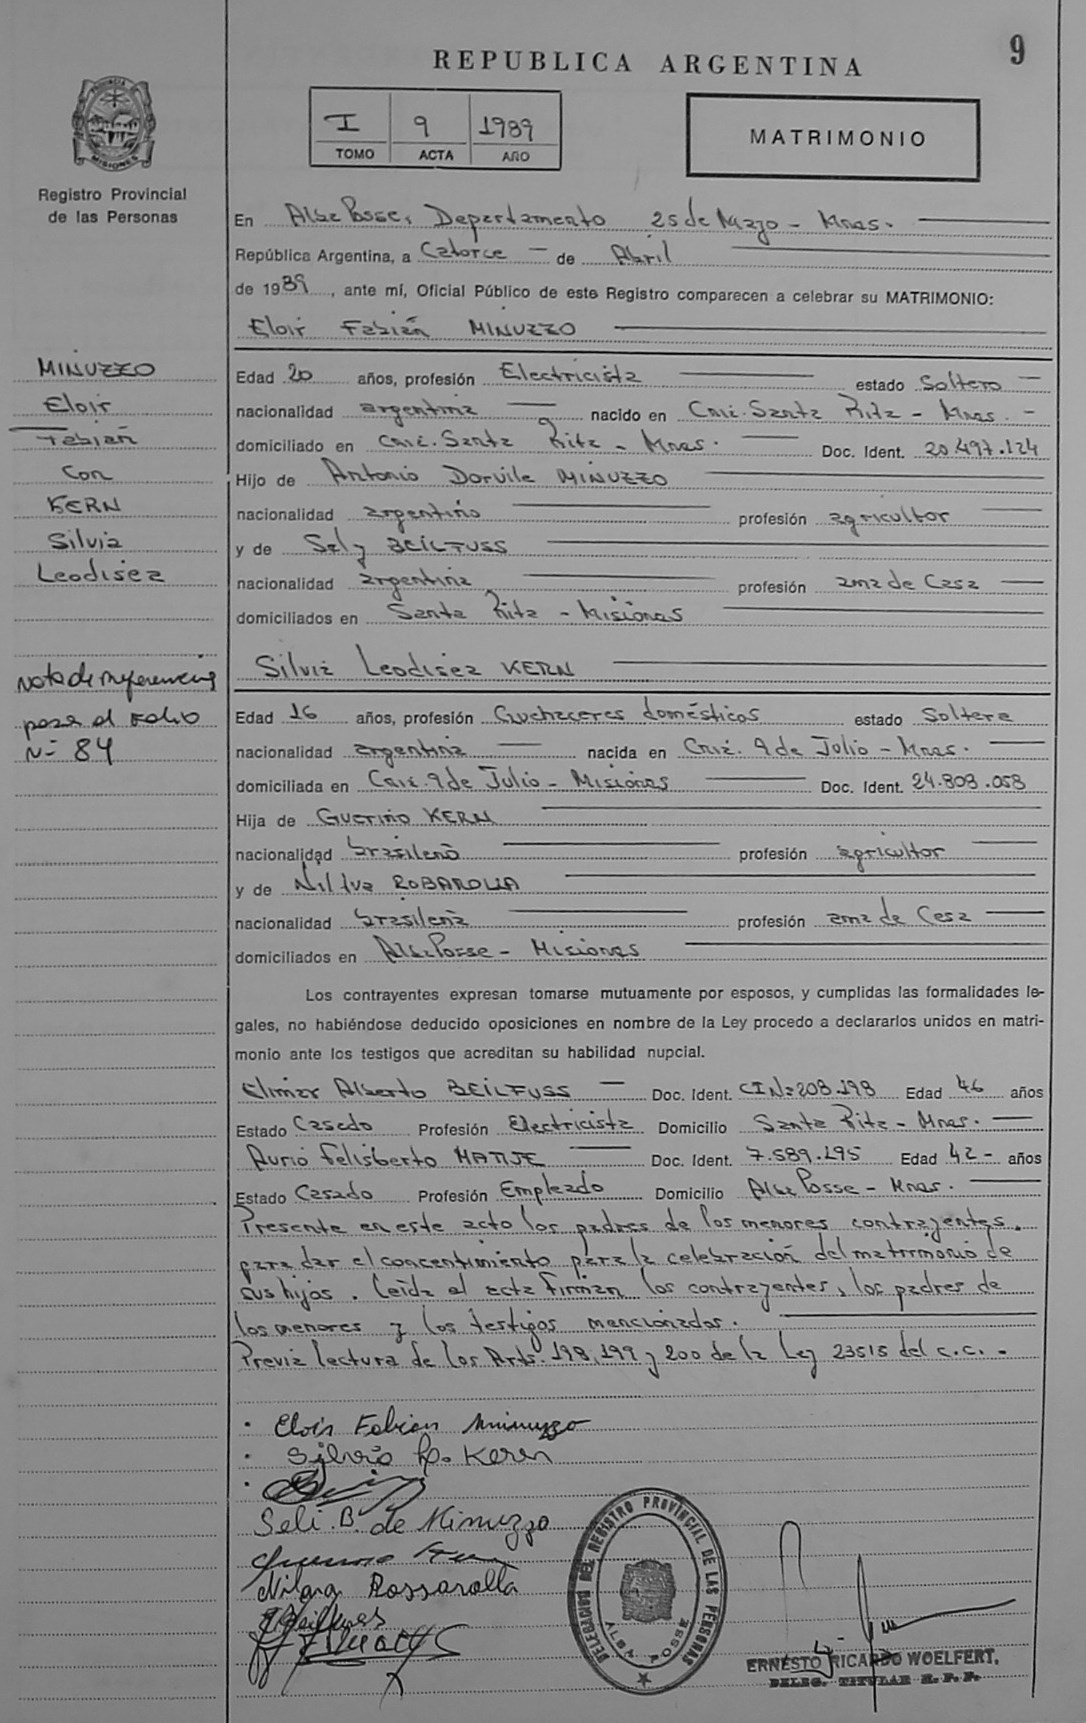 9
REPUBLICA ARGENTINA
I 9 1989
TOMO ACTA AÑO
MATRIMONIO
PROVINCIA MISIONES
Registro Provincial
de las Personas
En Alba Posse, Departamento 25 de Mayo - Mnes.
República Argentina, a Catorce de Abril
de 1989, ante mí, Oficial Público de este Registro comparecen a celebrar su MATRIMONIO:
Eloir Fabián MINUZZO
MINUZZO
Eloir
Fabián
Con
KERN
Silvia
Leodisea
Edad 20 años, profesión Electricista estado Soltero
nacionalidad argentina nacido en Cnia. Santa Rita - Mnes. -
domiciliado en Cnia. Santa Rita - Mnes. Doc. Ident. 20.497.124
Hijo de Antonio Dorvile MINUZZO
nacionalidad argentino profesión agricultor
y de Sely BEILFUSS
nacionalidad argentina profesión ama de Casa
domiciliados en Santa Rita - Misiones
Silvia Leodisea KERN
Nota de referencia
pasa al Folio
Nº 84
Edad 16 años, profesión Quehaceres domésticos estado Soltera
nacionalidad argentina nacida en Cnia. 9 de Julio - Mnes.
domiciliada en Cnia. 9 de Julio - Misiones Doc. Ident. 24.808.058
Hija de Guerino KERN
nacionalidad brasileño profesión agricultor
y de Nilva ROBAROLLA
nacionalidad brasileña profesión ama de Casa
domiciliados en Alba Posse - Misiones
Los contrayentes expresan tomarse mutuamente por esposos, y cumplidas las formalidades le-
gales, no habiéndose deducido oposiciones en nombre de la Ley procedo a declararlos unidos en matri-
monio ante los testigos que acreditan su habilidad nupcial.
Elimar Alberto BEILFUSS Doc. Ident. CI Nº 208.198 Edad 46 años
Estado Casado Profesión Electricista Domicilio Santa Rita - Mnes.
Aurio Felisberto MATTJE Doc. Ident. 7.589.195 Edad 42 - años
Estado Casado Profesión Empleado Domicilio Alba Posse - Mnes.
Presente en este acto los padres de los menores contrayentes,
para dar el concentimiento para la celebración del matrimonio de
sus hijos. Leída el acta firman los contrayentes, los padres de
los menores y los testigos mencionados.
Previa lectura de los Arts. 198, 199 y 200 de la Ley 23515 del C.C. -
Eloir Fabian Minuzzo
Silvia L. Kern
Seli. B. de Minuzzo
Nilva Rossarolla
DELEGACION DEL REGISTRO PROVINCIAL DE LAS PERSONAS
ALBA POSSE
ERNESTO RICARDO WOELFERT.
DELEG. TITULAR R. P. P.